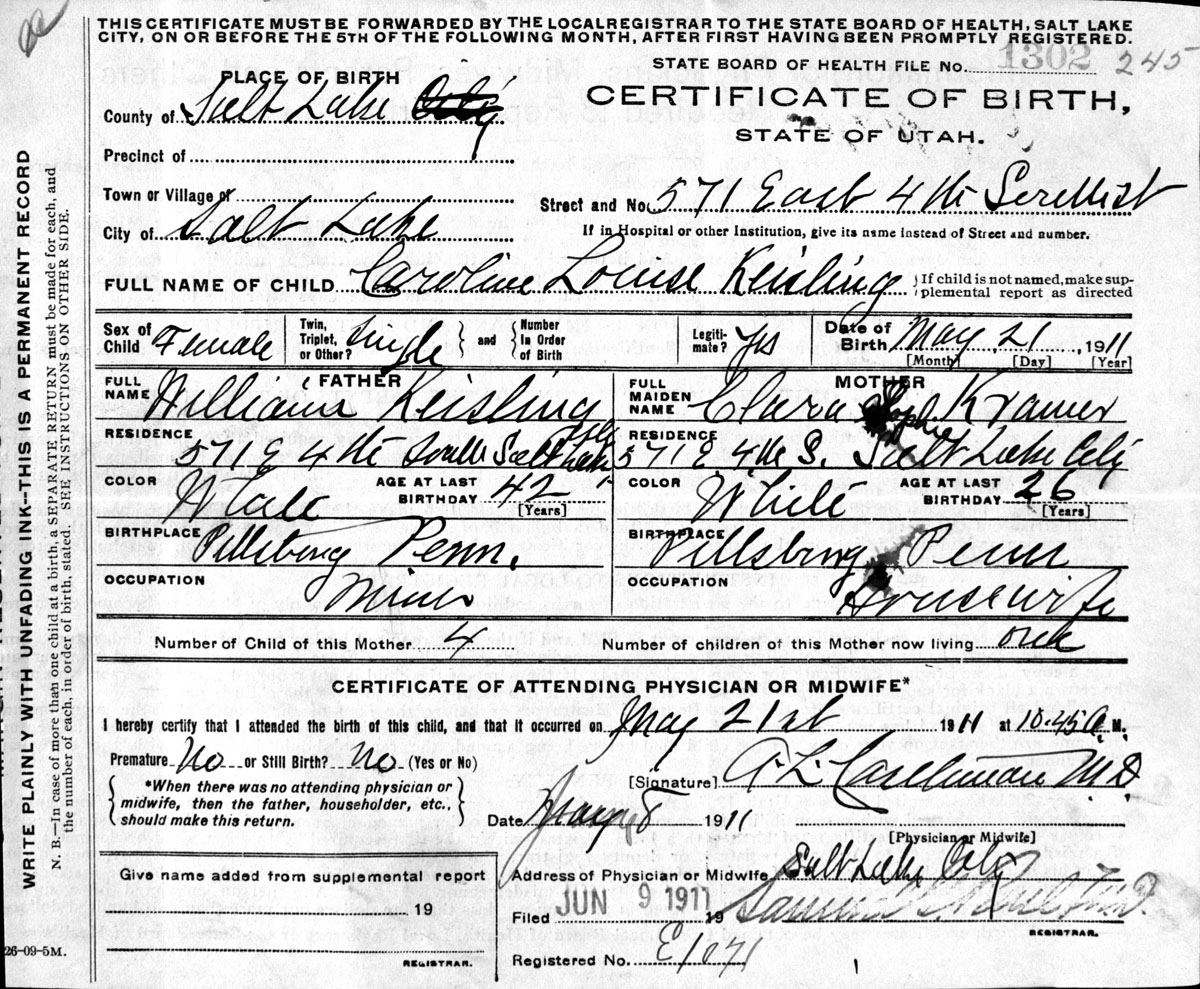 THIS CERTIFICATE MUST BE FORWARDED BY THE LOCAL REGISTRAR TO THE STATE BOARD OF HEALTH, SALT LAKE
CITY, ON OR BEFORE THE 5TH OF THE FOLLOWING MONTH, AFTER FIRST HAVING BEEN PROMPTLY REGISTERED.
STATE BOARD OF HEALTH FILE No. 1302 245
PLACE OF BIRTH
CERTIFICATE OF BIRTH,
County of Salt Lake City
STATE OF UTAH.
Precinct of
Town or Village of
Street and No. 571 East 4th
City of Salt Lake
If in Hospital or other Institution, give its name instead of Street and number.
FULL NAME OF CHILD Caroline Louise Keisling
If child is not named, make sup-
plemental report as directed
Sex of Child Female
Twin, Triplet, or Other? Single
and Number In Order of Birth
Legiti-mate? Yes
Date of Birth May 21, 1911
[Month] [Day] [Year]
FATHER
FULL NAME William Keisling
RESIDENCE 571 E 4th South Salt Lake City
COLOR White
AGE AT LAST BIRTHDAY 42
[Years]
BIRTHPLACE Pittsburg Penn.
OCCUPATION Miner
MOTHER
FULL MAIDEN NAME Clara Sophie Kramer
RESIDENCE 571 E 4th S. Salt Lake City
COLOR White
AGE AT LAST BIRTHDAY 26
[Years]
BIRTHPLACE Pittsburg Penn
OCCUPATION Housewife
Number of Child of this Mother 4
Number of children of this Mother now living one
CERTIFICATE OF ATTENDING PHYSICIAN OR MIDWIFE*
I hereby certify that I attended the birth of this child, and that it occurred on May 21st 1911 at 10.45 A. M.
Premature No or Still Birth? No (Yes or No)
*When there was no attending physician or
midwife, then the father, householder, etc.,
should make this return.
[Signature] A. L. M.D.
Date 8 1911
[Physician or Midwife]
Give name added from supplemental report
19
REGISTRAR.
Address of Physician or Midwife Salt Lake City
Filed JUN 9 1911 19
REGISTRAR.
Registered No. E1071
WRITE PLAINLY WITH UNFADING INK--THIS IS A PERMANENT RECORD
N. B.—In case of more than one child at a birth, a SEPARATE RETURN must be made for each, and
the number of each, in order of birth, stated. SEE INSTRUCTIONS ON OTHER SIDE.
26-09-5M.